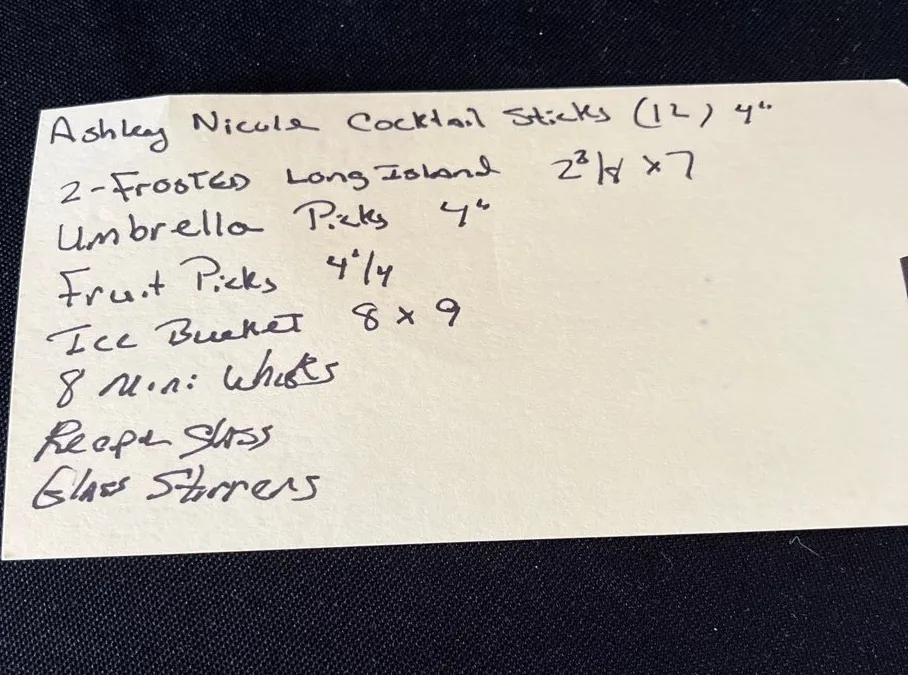 Ashley Nicole Cocktail Sticks (12) 4"
2-FROSTED Long Island 2 3/8 x 7
Umbrella Picks 4"
Fruit Picks 4 1/4
Ice Bucket 8 x 9
8 Mini Whisks
Glass
Glass Stirrers